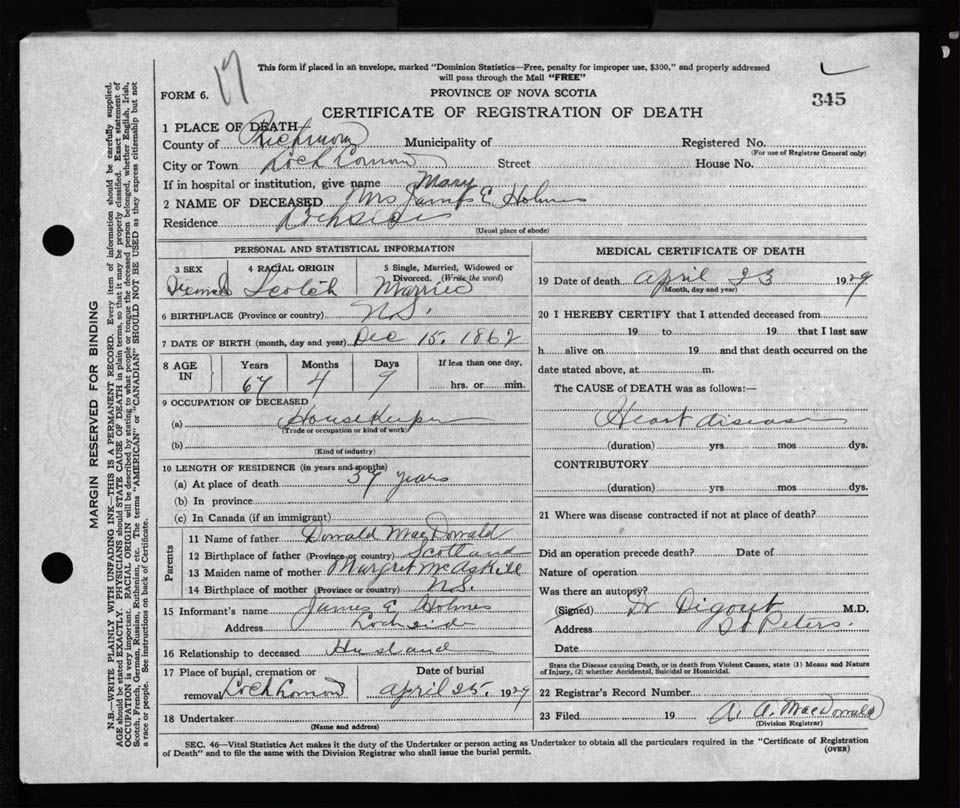 17
This form if placed in an envelope, marked "Dominion Statistics—Free, penalty for improper use, $300," and properly addressed
will pass through the Mail "FREE"
FORM 6.
PROVINCE OF NOVA SCOTIA
345
CERTIFICATE OF REGISTRATION OF DEATH
1 PLACE OF DEATH
County of Richmond Municipality of Registered No.
(For use of Registrar General only)
City or Town Loch Lomond Street House No.
If in hospital or institution, give name Mary
2 NAME OF DECEASED Mrs James E Holmes
Residence Lochside
(Usual place of abode)
PERSONAL AND STATISTICAL INFORMATION
3 SEX 4 RACIAL ORIGIN 5 Single, Married, Widowed or
Divorced. (Write the word)
Female Scotch Married
6 BIRTHPLACE (Province or country) N.S.
7 DATE OF BIRTH (month, day and year) Dec 15. 1862
8 AGE IN Years Months Days If less than one day,
67 4 9 hrs. or min.
9 OCCUPATION OF DECEASED
(a) House Keeper
(Trade or occupation or kind of work)
(b)
(Kind of industry)
10 LENGTH OF RESIDENCE (in years and months)
(a) At place of death 37 years
(b) In province
(c) In Canada (if an immigrant)
Parents
11 Name of father Donald MacDonald
12 Birthplace of father (Province or country) Scotland
13 Maiden name of mother Margret McAskill
14 Birthplace of mother (Province or country) N.S.
15 Informant's name James E Holmes
Address Lochside
16 Relationship to deceased Husband
17 Place of burial, cremation or Date of burial
removal Loch Lomond April 25. 1929
18 Undertaker
(Name and address)
MEDICAL CERTIFICATE OF DEATH
19 Date of death April 23 1929
(Month, day and year)
20 I HEREBY CERTIFY that I attended deceased from
19 to 19 that I last saw
h alive on 19 and that death occurred on the
date stated above, at m.
The CAUSE of DEATH was as follows:—
Heart disease
(duration) yrs. mos dys.
CONTRIBUTORY
(duration) yrs. mos dys.
21 Where was disease contracted if not at place of death?
Did an operation precede death? Date of
Nature of operation
Was there an autopsy?
(Signed) Dr Digout M.D.
Address St Peters.
Date
State the Disease causing Death, or in death from Violent Causes, state (1) Means and Nature
of Injury, (2) whether Accidental, Suicidal or Homicidal.
22 Registrar's Record Number
23 Filed 19 A. A. MacDonald
(Division Registrar)
SEC. 46—Vital Statistics Act makes it the duty of the Undertaker or person acting as Undertaker to obtain all the particulars required in the "Certificate of Registration
of Death" and to file the same with the Division Registrar who shall issue the burial permit.
(OVER)
MARGIN RESERVED FOR BINDING
N.B.—WRITE PLAINLY WITH UNFADING INK—THIS IS A PERMANENT RECORD. Every item of information should be carefully supplied.
AGE should be stated EXACTLY. PHYSICIANS should STATE CAUSE OF DEATH in plain terms, so that it may be properly classified. Exact statement of
OCCUPATION is very important. RACIAL ORIGIN will be described by stating to what people or tongue the deceased person belonged, whether English, Irish,
Scotch, French, German, Russian, Ruthenian, etc. The terms "AMERICAN" or "CANADIAN" SHOULD NOT BE USED as they express citizenship but not
a race or people. See instructions on back of Certificate.